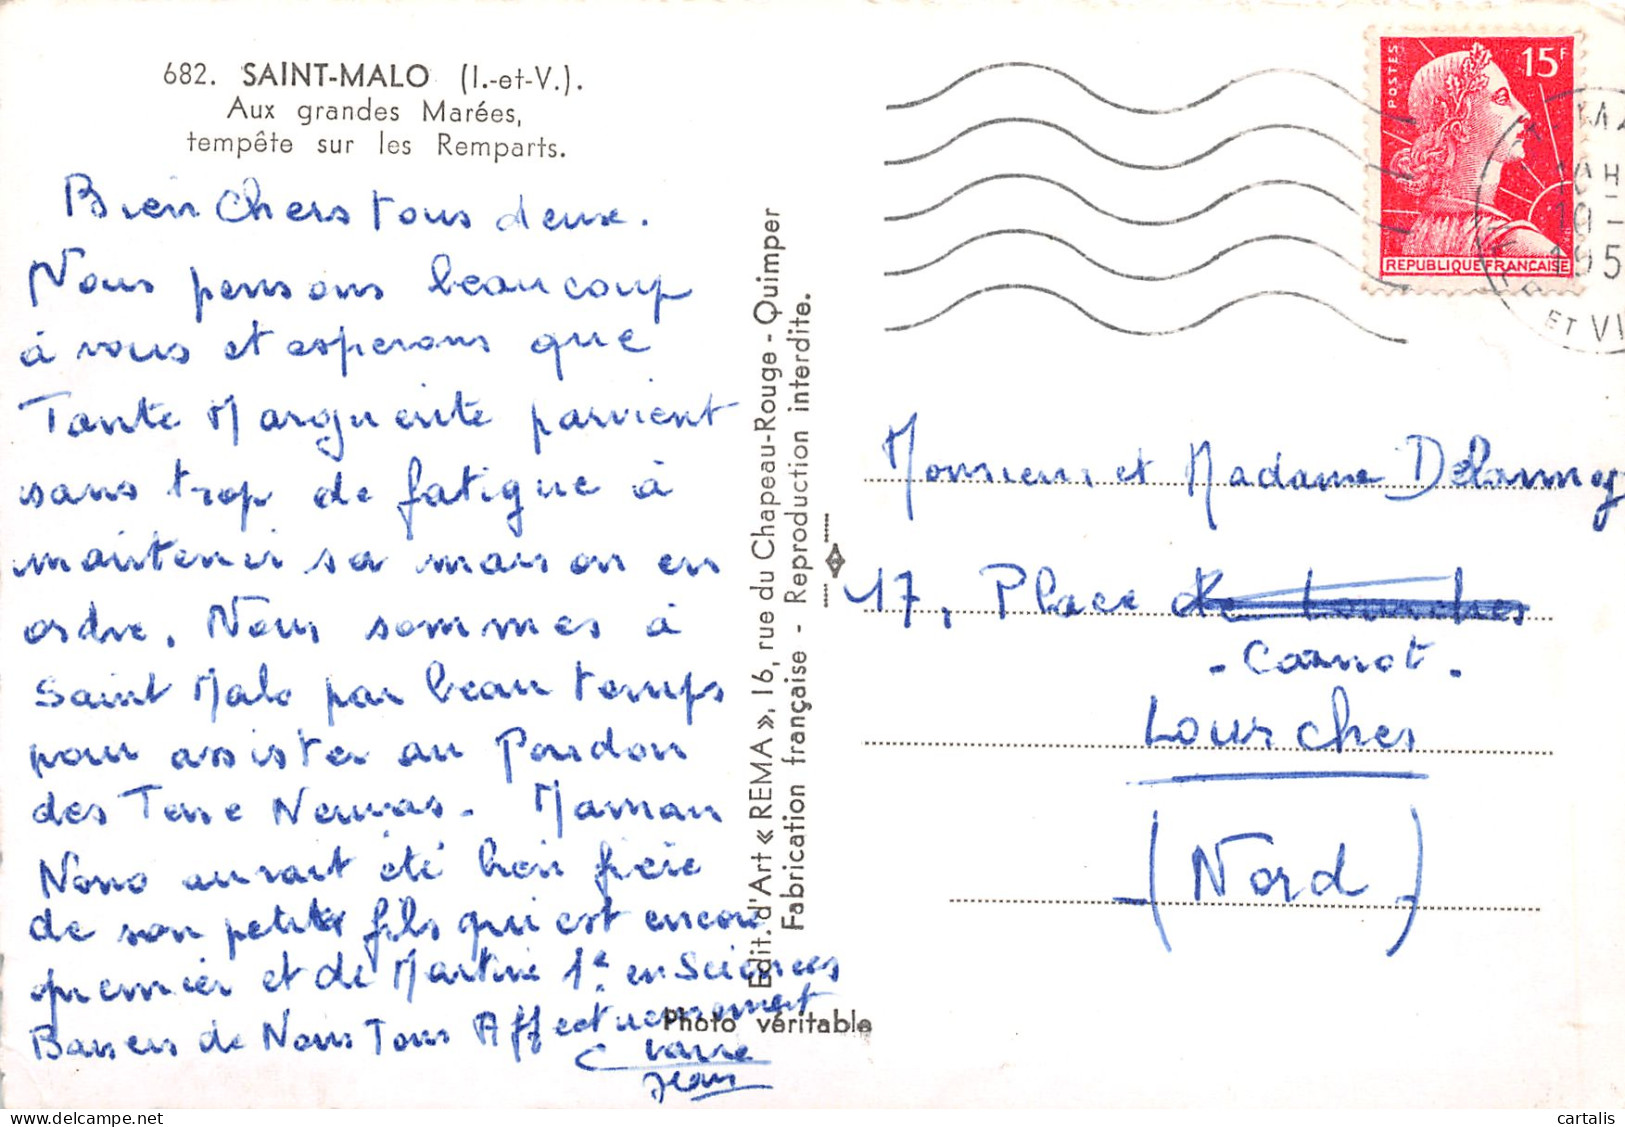 682. SAINT-MALO (I.-et-V.).
Aux grandes Marées,
tempête sur les Remparts.
Bien Chers tous deux.
Nous pensons beaucoup
à vous et esperons que
Tante Marguerite parvient
sans trop de fatigue à
maintenir sa maison en
ordre. Nous sommes à
Saint Malo par beau temps
pour assister au Pardon
des Terre Neuvas. Maman
Nono aurait été bien fière
de son petit fils qui est encore
premier et de Martine 1e en Sciences
Baisers de Nous Tous Affectueusement
Jean
Edit. d'Art « REMA », 16, rue du Chapeau-Rouge - Quimper
Fabrication française - Reproduction interdite.
Photo véritable
POSTES
15F
REPUBLIQUE FRANÇAISE
10H
10-
195
ET VI
Monsieur et Madame Delannoy
17, Place de Lourches
- Carnot -
Lourches
(Nord)
cartalis